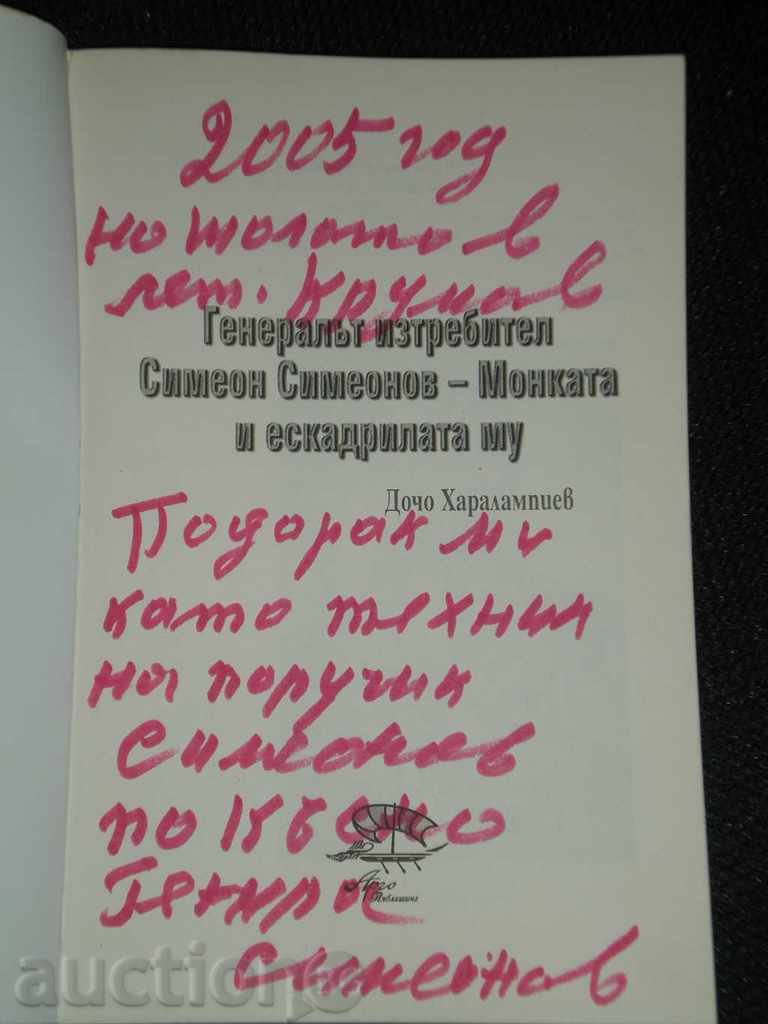 2005 год
на тołото в
лет. Крумов
Генералът изтребител
Симеон Симеонов – Монката
и ескадрилата му
Дочо Харалампиев
Подарак ми
като техник
на поручик
Симеонов
по късно
Генерал
Симеонов
Арго
Пъблишинг
auction